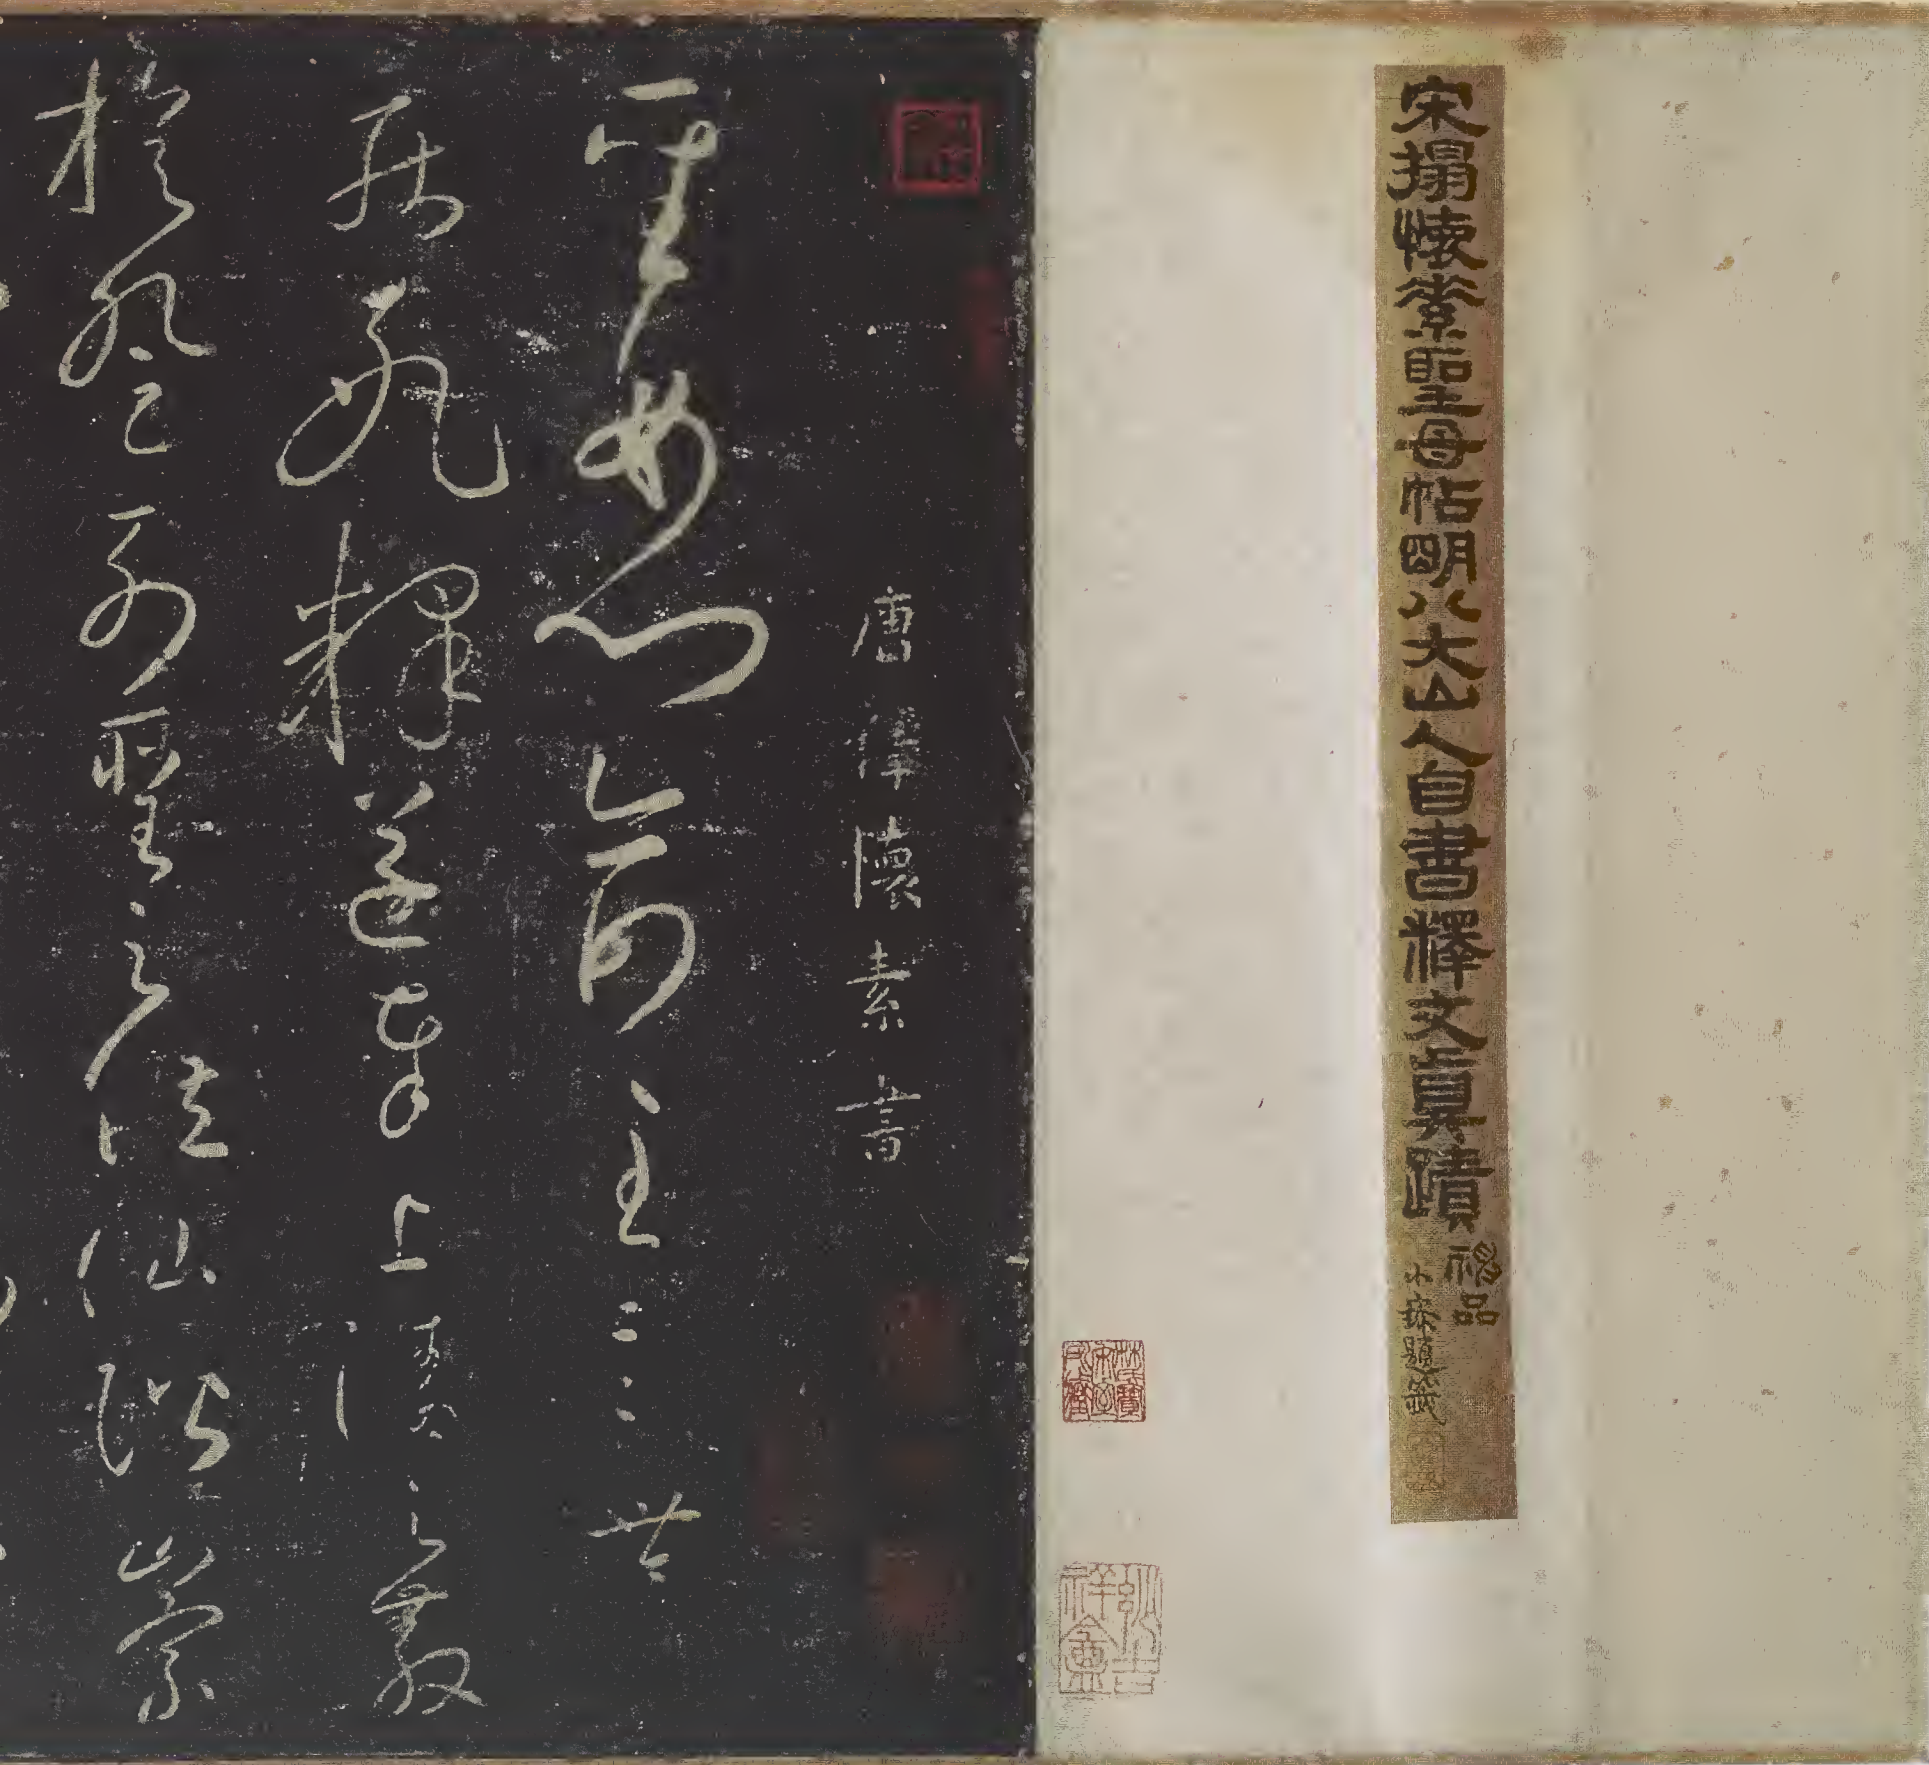 宋搨懷素聖母帖明八大山人自書釋文眞蹟
神品
題籤
林氏寶宋室所藏
唐僧懷素書
聖母心俞至言世
疾冰釋遂奉上清之教
旋登列聖之位仙階崇